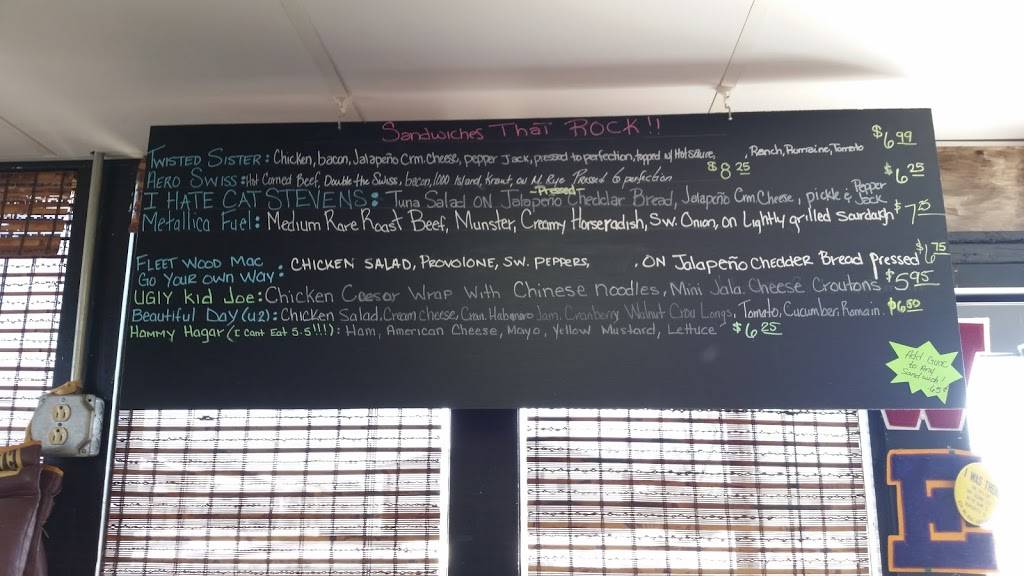 Sandwiches That ROCK!!
Twisted Sister: Chicken, bacon, Jalapeño Crm. Cheese, pepper Jack, pressed to perfection, topped w/ Hot Sauce, Ranch, Romaine, Tomato $6.99
Aero Swiss: Hot Corned Beef, Double the Swiss, bacon, 1000 Island, Kraut, on M. Rye Pressed to perfection $8.25
$6.25
I HATE CAT STEVENS: Tuna Salad ON Jalapeño Cheddar Bread, Jalapeño Crm Cheese, pickle & Pepper Jack
Pressed
Metallica Fuel: Medium Rare Roast Beef, Munster, Creamy Horseradish, Sw. Onion, on Lightly grilled Sourdough $7.25
FLEETWOOD MAC
Go Your own Way: CHICKEN SALAD, PROVOLONE, SW. PEPPERS, . ON Jalapeño Chedder Bread pressed $6.75
UGLY Kid Joe: Chicken Caesar Wrap With Chinese noodles, Mini Jala. Cheese Croutons $5.95
Beautiful Day (U2): Chicken Salad, Cream cheese, Habanero Jam, Cranberry Walnut Longs, Tomato, Cucumber, Romain. $6.50
Hammy Hagar (I Cant Eat 5.5!!!): Ham, American Cheese, Mayo, Yellow Mustard, Lettuce $6.25
Add Guac
to Any
Sandwich!
.65¢
E
I WAS THERE